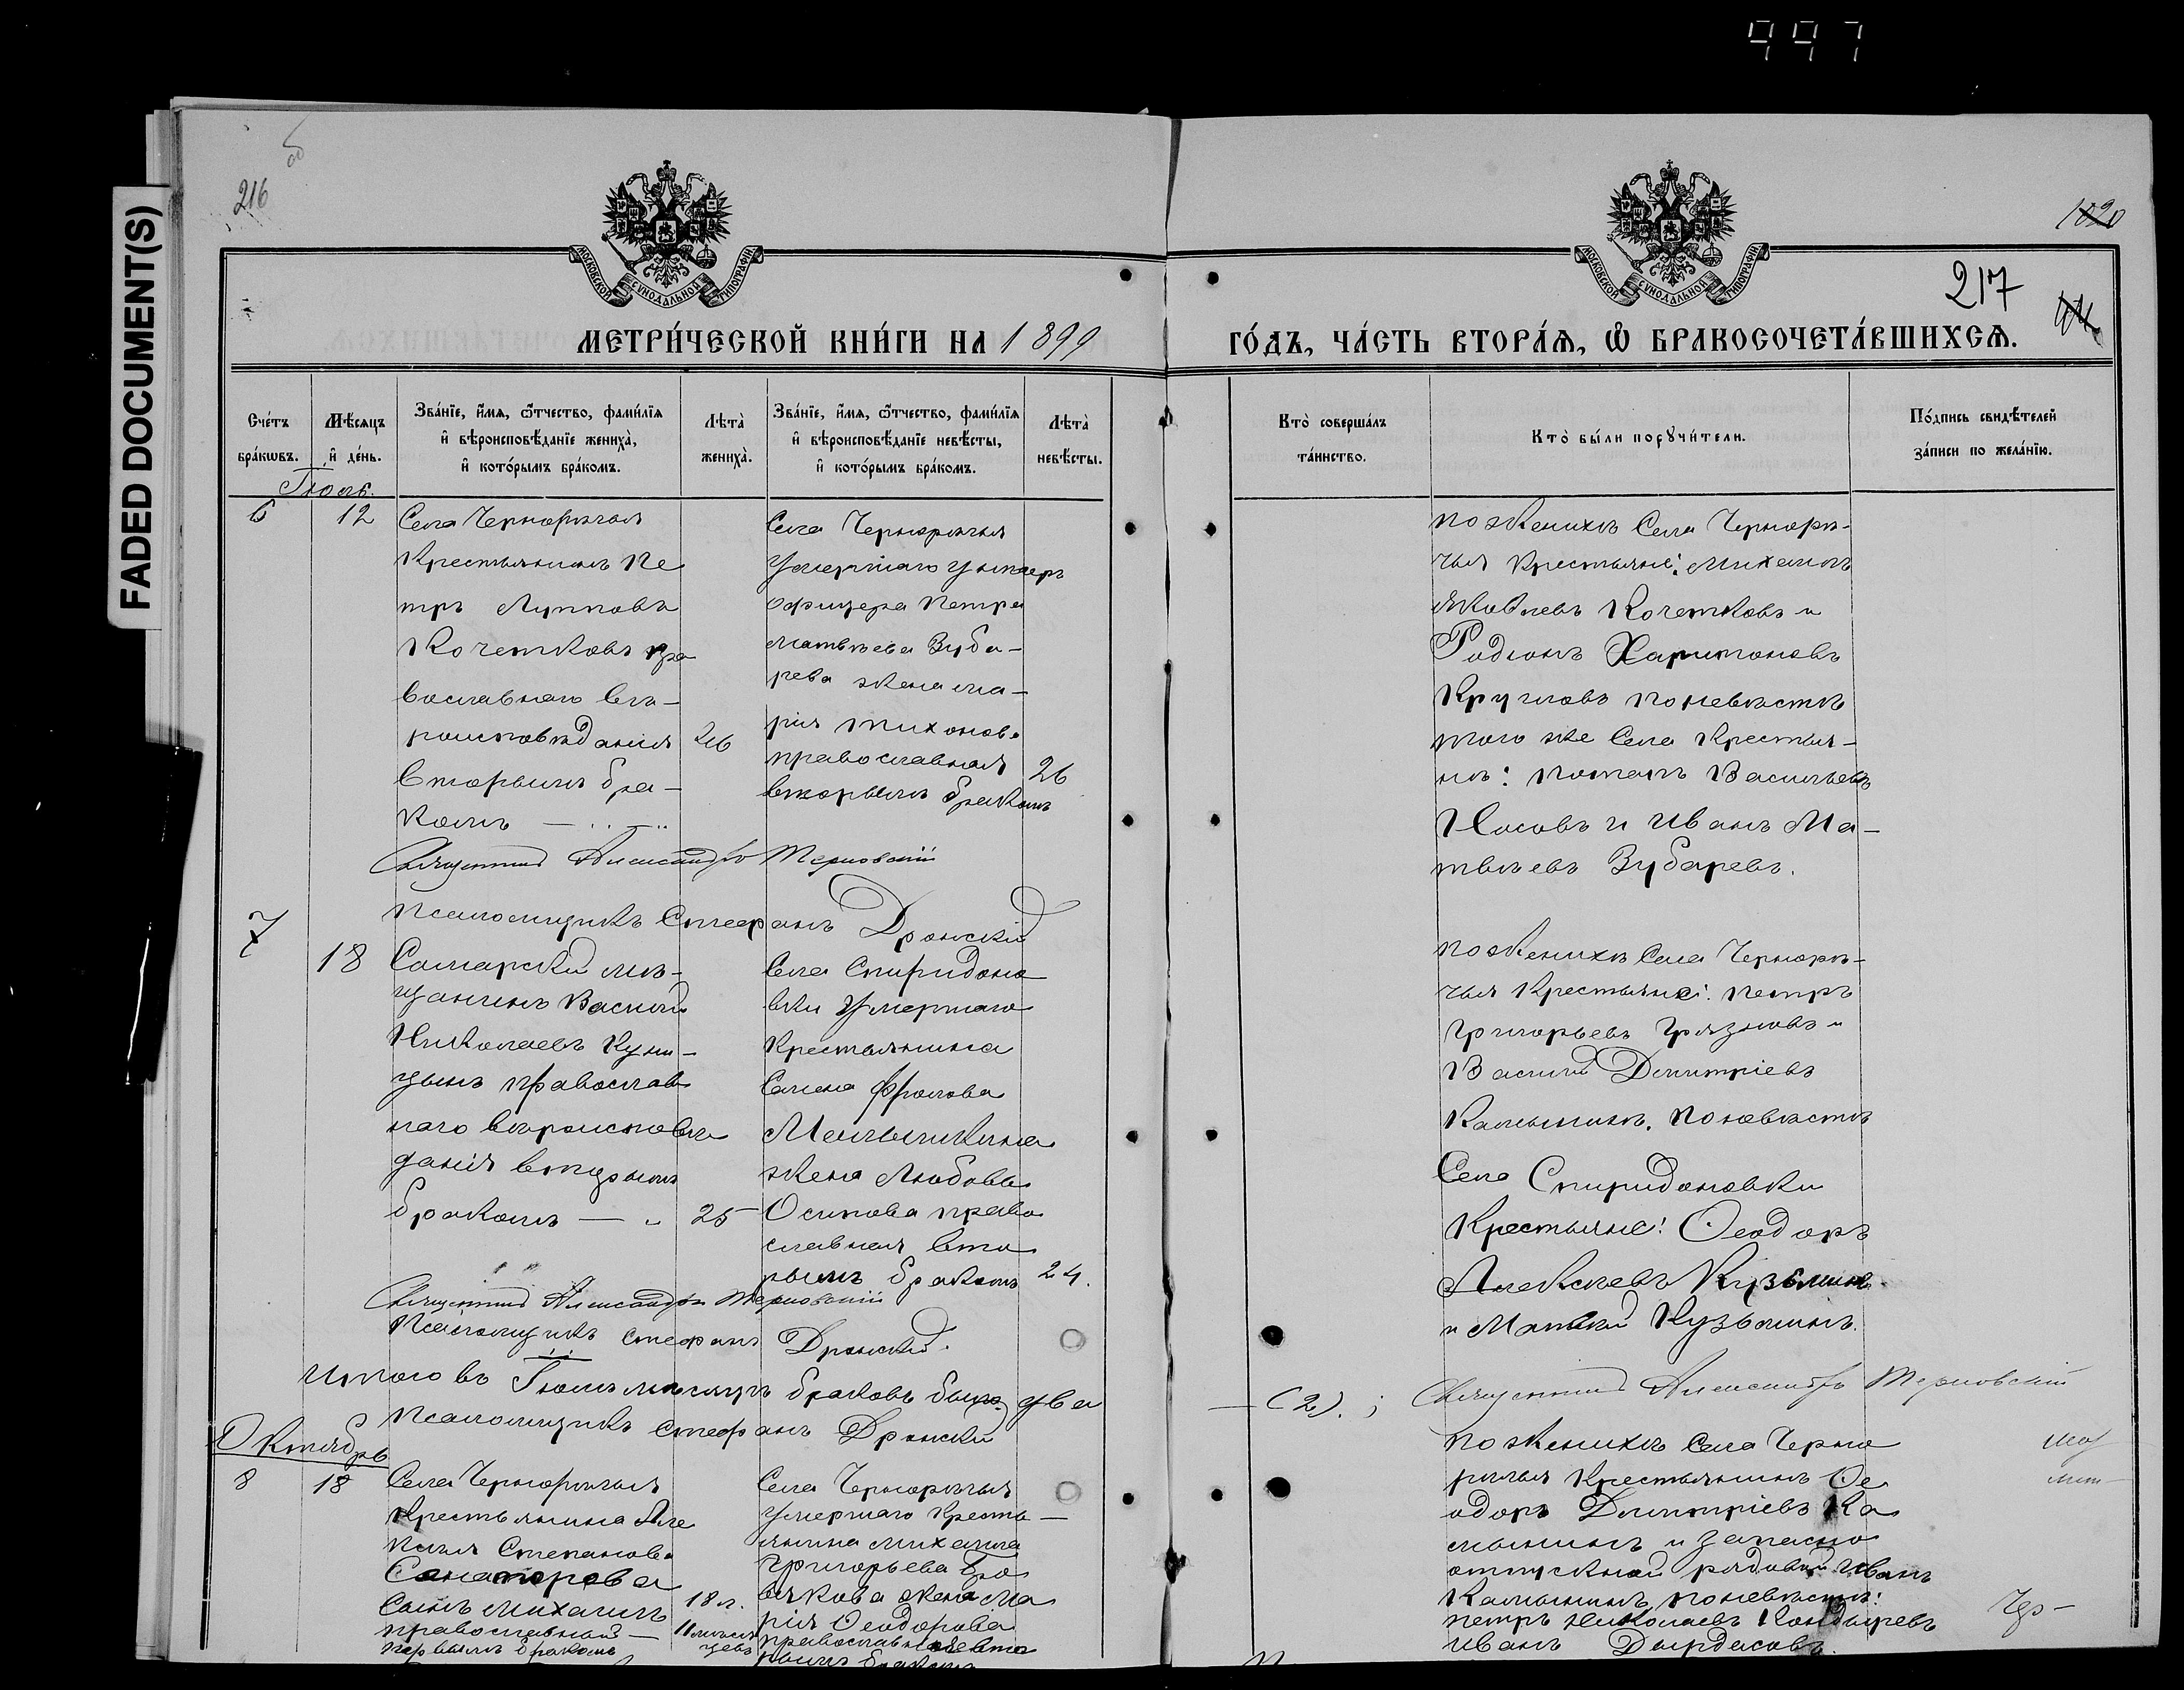 997
FADED DOCUMENT(S)
216
об
1020
217
МОСКОВСКОЙ СѴНОДАЛЬНОЙ ТИПОГРАФІИ
МОСКОВСКОЙ СѴНОДАЛЬНОЙ ТИПОГРАФІИ
МЕТРИ́ЧЕСКОЙ КНИ́ГИ НА 1899
ГО́ДЪ, ЧА́СТЬ ВТОРА́Ѧ, Ѽ БРАКОСОЧЕТА́ВШИХСѦ.
Сче́тъ бра́кѡвъ.
Мѣ́сяцъ и҆ де́нь.
Зва́нїе, и҆́мѧ, ѻ҆́тчество, фамилїѧ и҆ вѣроисповѣ́данїе жениха̀, и҆ кото́рымъ бра́комъ.
Лѣта̀ жениха̀.
Зва́нїе, и҆́мѧ, ѻ҆́тчество, фамилїѧ и҆ вѣроисповѣ́данїе невѣ́сты, и҆ кото́рымъ бра́комъ.
Лѣта̀ невѣ́сты.
Кто̀ соверша́лъ та́инство.
Кто̀ бы́ли порꙋчи́тели.
По́дпись свидѣ́телей за́писи по жела́нїю.
Іюль.
6
12
Села Чернорѣчья
Крестьянинъ Пе
тръ Лупповъ
Кочетковъ пра
вославнаго вѣ-
роисповѣданія
вторымъ бра-
комъ
26
Села Чернорѣчья
умершаго унтеръ
офицера Петра
Матвѣева Зуба-
рева жена Ма-
рія Тихонова
православная
вторымъ бракомъ
26
по женихѣ Села Чернорѣ-
чья Крестьяне: Михаилъ
Яковлевъ Кочетковъ и
Родіонъ Харитоновъ
Кругловъ по невѣстѣ
того же Села Крестья-
нѣ: Потапъ Васильевъ
Носовъ и Иванъ Ма-
твѣевъ Зубаревъ.
Священникъ Александръ Терновскій
Псаломщикъ Стефанъ Дронскій
7
18
Самарскій мѣ-
щанинъ Василій
Николаевъ Куни-
цынъ православ
наго вѣроисповѣ
данія вторымъ
бракомъ
25
Села Спиридоно
вки умершаго
Крестьянина
Самсона Фролова
жена Любовь
Осипова право
славная вто
рымъ бракомъ
24.
по женихѣ Села Чернорѣ-
чья Крестьяне: Петръ
Григорьевъ Грязновъ и
Василій Димитріевъ
Камынинъ. По невѣстѣ
Села Спиридоновки
Крестьяне: Ѳеодоръ
Алексѣевъ Кузьминъ
и Матвѣй Кузьминъ.
Священникъ Александръ Терновскій
Псаломщикъ Стефанъ Дронскій.
Итого въ Іюлѣ мѣсяцѣ браковъ было два
(2).;
Священникъ Александръ Терновскій
Псаломщикъ Стефанъ Дронскій
Октябрь
8
18
Села Чернорѣчья
Крестьянина
Степанова
Санаторова
сынъ Михаилъ
православный
первымъ бракомъ
18 л.
11 мѣся
цевъ
Села Чернорѣчья
умершаго Кресть-
янина Михаила
Григорьева
жена Ма
рія Ѳеодорова
православная вто
рымъ бракомъ
по женихѣ Села Черно
рѣчья Крестьянинъ Ѳе
одоръ Димитріевъ Ка
мынинъ и запасно
отпускной рядовой Иванъ
Камынинъ, по невѣстѣ:
Петръ Николаевъ Кондыревъ
Иванъ Дырдасовъ.